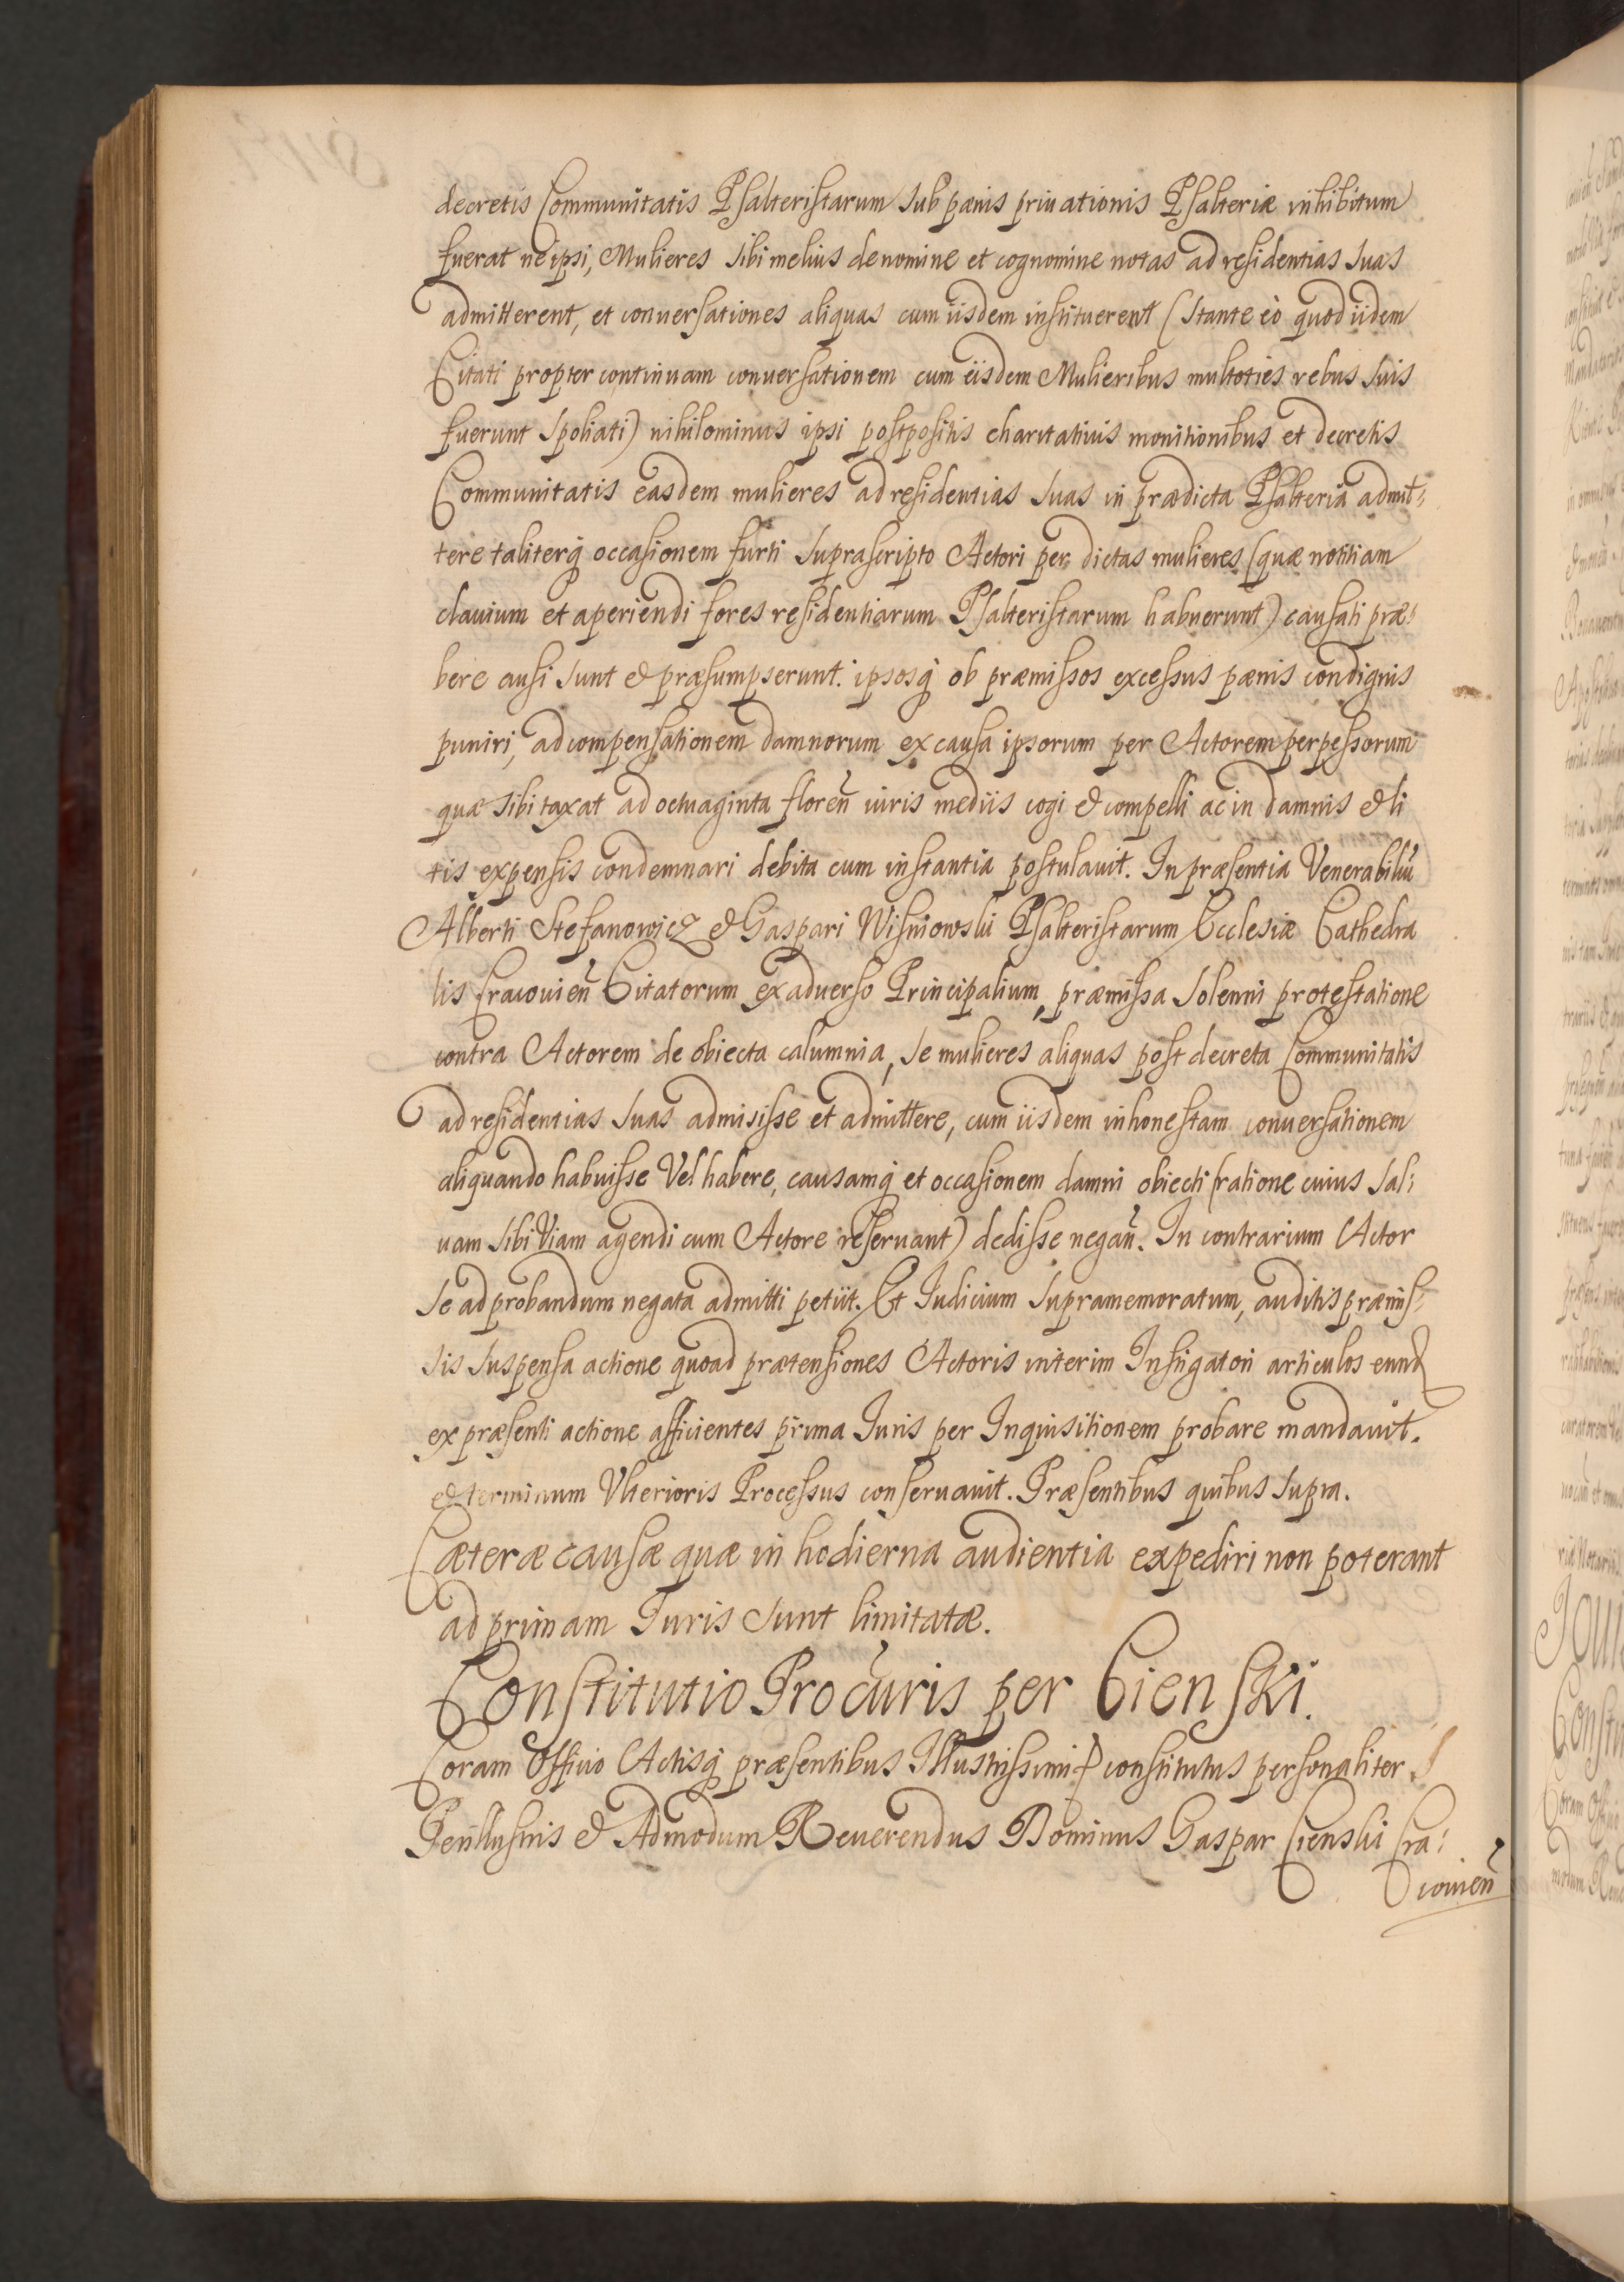 decretis Communitatis Psalteristarum sub pænis priuationis Psalteriæ inhibitum
fuerat ne ipsi, Mulieres sibi melius de nomine et cognomine notas ad residentias suas
admitterent, et conuersationes aliquas cum iisdem instituerent (stante eò quod iidem
Citati propter continuam conuersationem cum eisdem Mulieribus multoties rebus suis
fuerunt spoliati) nihilominus ipsi postpositis charitatiuis monitionibus et decretis
Communitatis easdem mulieres ad residentias suas in prædicta Psalteria admit:
tere taliterq occasionem furti suprascripto Actori per dictas mulieres (quæ notitiam
clauium et aperiendi fores residentiarum Psalteristarum habuerunt) causati præ:
bere ausi sunt & præsumpserunt. ipsosq ob præmissos excessus pænis condignis
puniri, ad compensationem damnorum ex causa ipsorum per Actorem perpessorum
quæ sibi taxat ad octuaginta floreñ iuris mediis cogi & compelli ac in damnis & li
tis expensis condemnari debita cum instantia postulauit. In præsentia Venerabiliũ
Alberti Stefanowicz & Gaspari Wisniowski Psalteristarum Ecclesiæ Cathedra
lis Cracouieñ Citatorum ex aduerso Principalium, præmissa solenni protestatione
contra Actorem de obiecta calumnia, se mulieres aliquas post decreta Communitatis
ad residentias suas admisisse et admittere, cum iisdem inhonestam conuersationem
aliquando habuisse Vel habere, causamq et occasionem damni obiecti (ratione cuius sal:
uam sibi Viam agendi cum Actore reseruant) dedisse negañ. In contrarium Actor
se ad probandum negata admitti petiit. Et Iudicium supramemoratum, auditis præmis:
sis suspensa actione quoad prætensiones Actoris interim Instigatori articulos eund
ex præsenti actione afficientes prima Iuris per Inquisitionem probare mandauit.
& terminum Vlterioris Processus conseruauit. Præsentibus quibus supra.
Cæteræ causæ quæ in hodierna audientia expediri non poterant
ad primam Iuris sunt limitatæ.
Constitutio Procuris per Cienski.
Coram Officio Actisq præsentibus Illustrissimi constitutus personaliter
Perillustris & Admodum Reuerendus Dominus Gaspar Cienski Cra:
couieñ